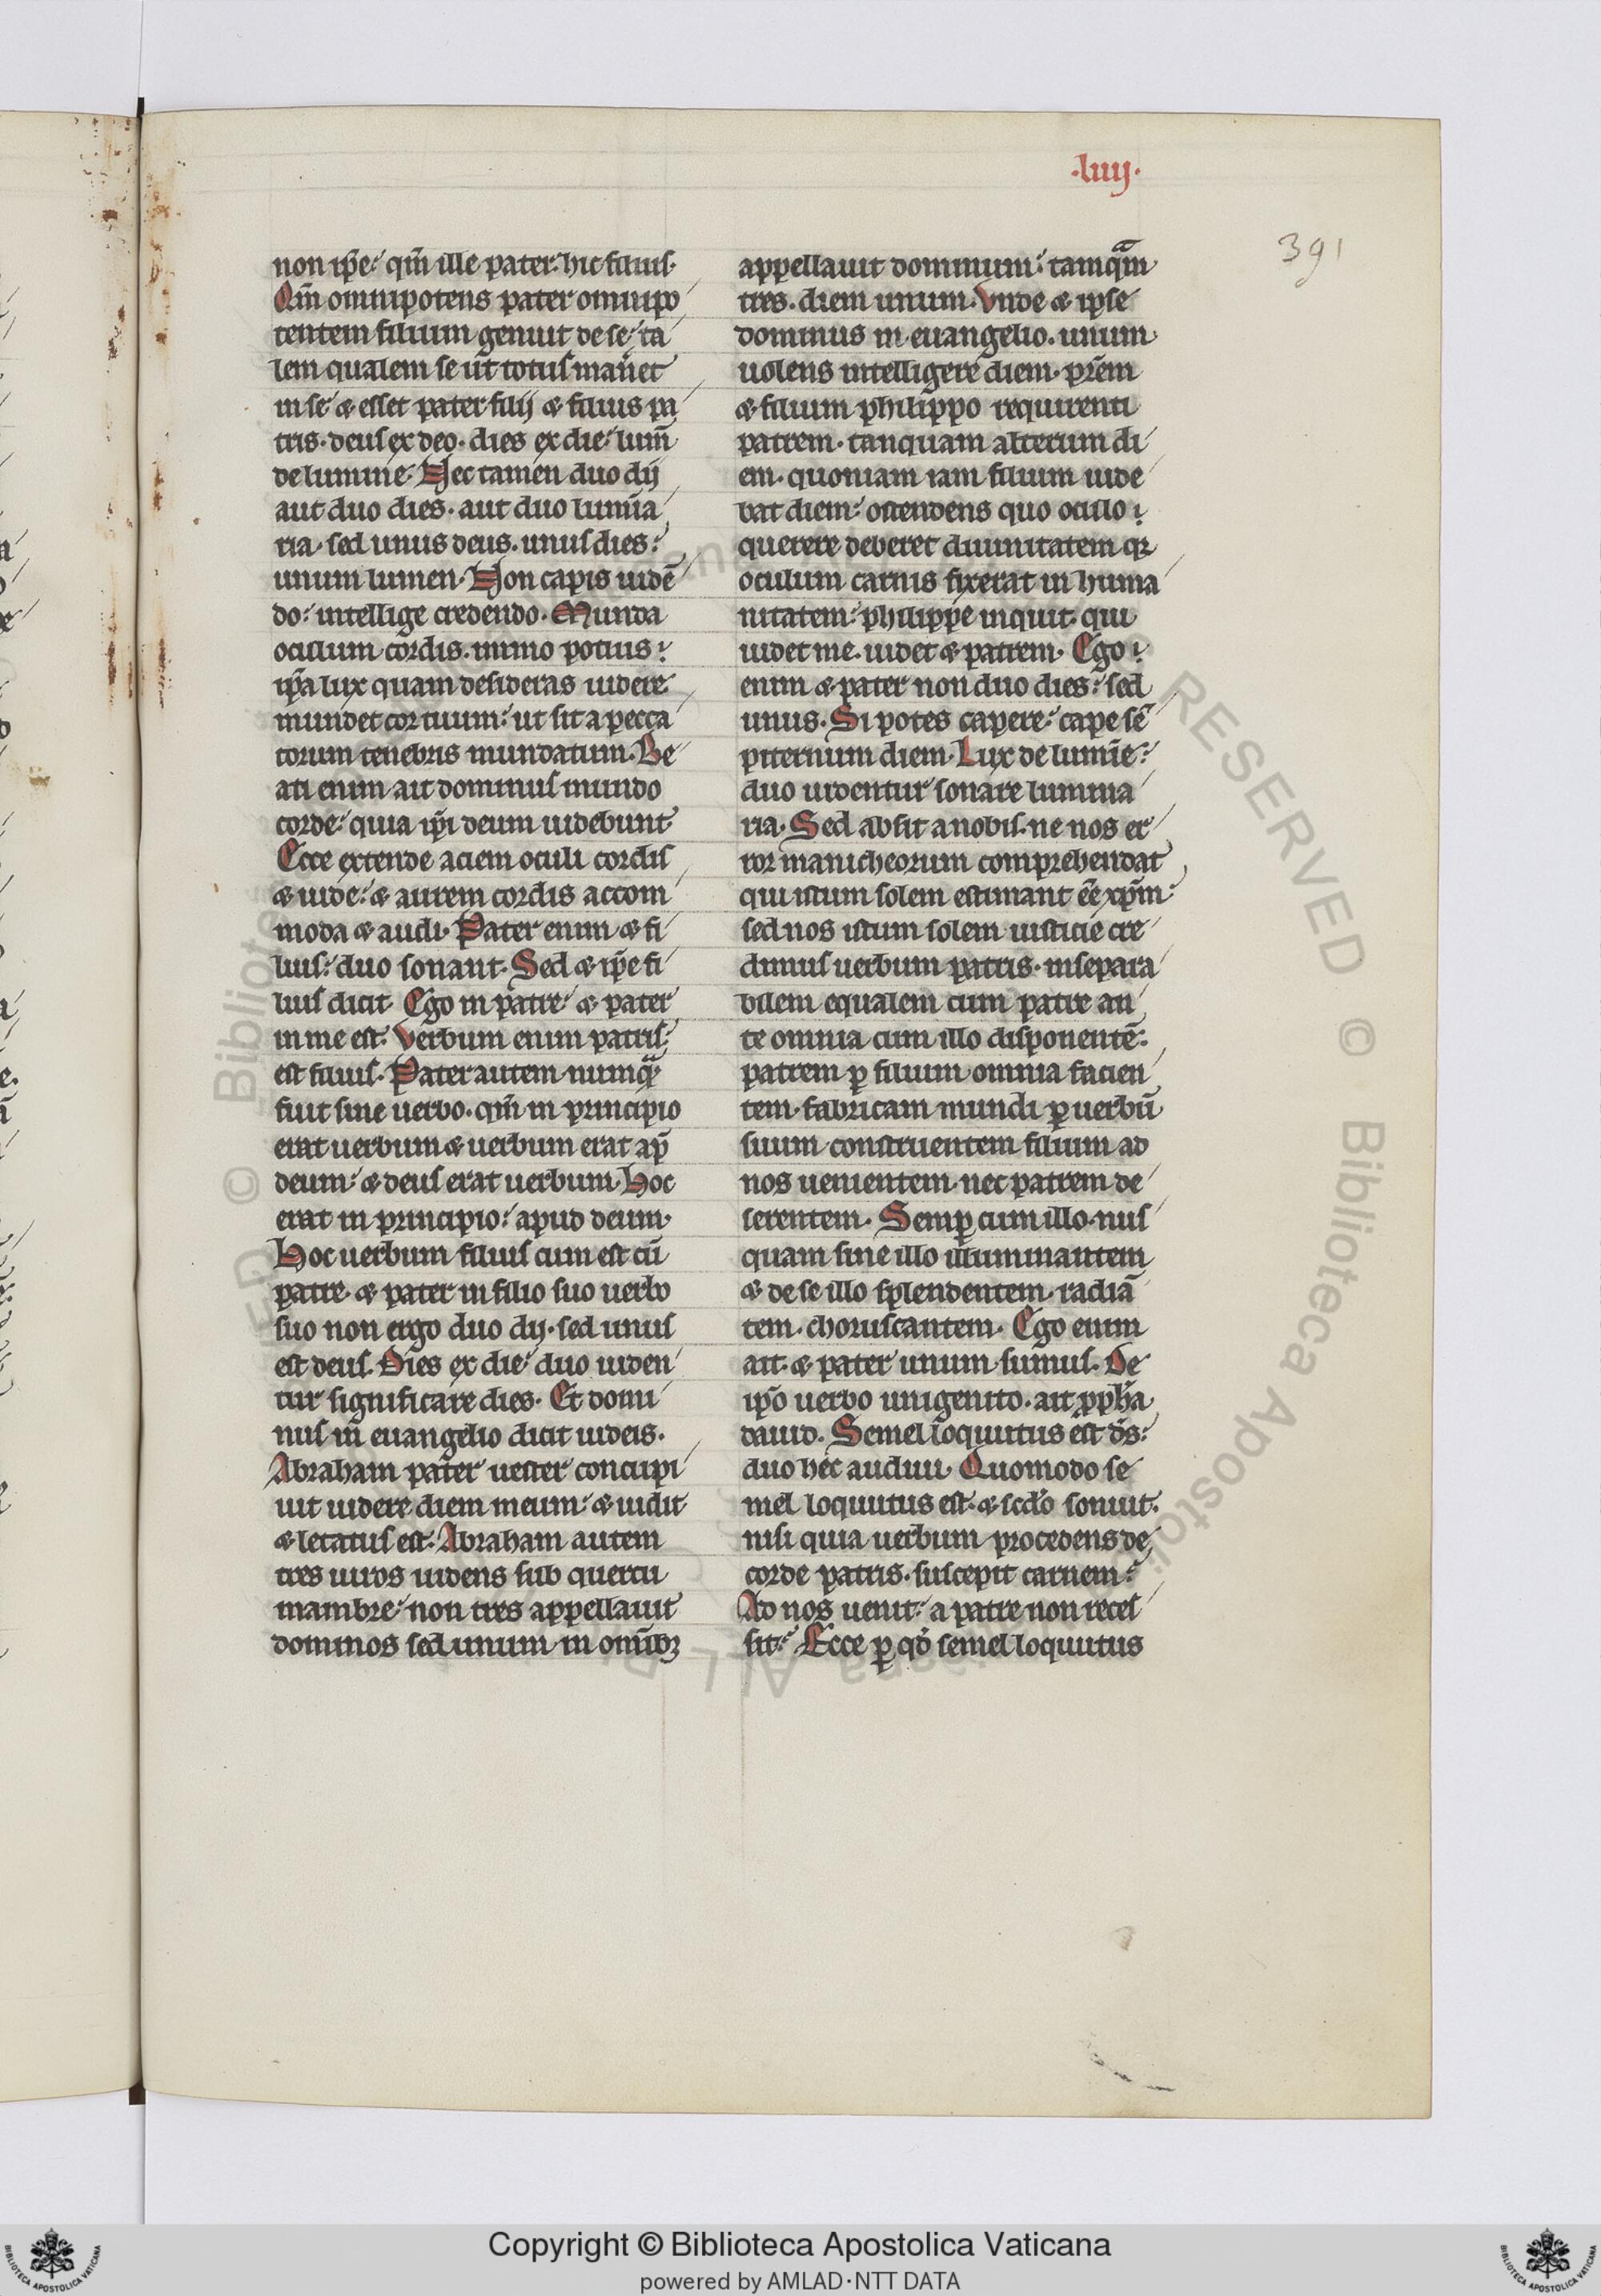 .liiij.
391
non ip̄e: qm̄ ille pater: hic filius.
Qm̄ omnipotens pater omnipo
tentem filium genuit de se: ta
lem qualem se ut totus maneret
in se & esset pater filij & filius pa
tris. deus ex deo. dies ex die: lum̄
de lumine. Nec tamen duo dij
aut duo dies. aut duo lumīa
ria. sed unus deus. unus dies:
unum lumen. Non capis uidē
do: intellige credendo. Munda
oculum cordis. immo potius:
ip̄a lux quam desideras uidere
mundet cor tuum: ut sit a pecca
torum tenebris mundatum. Be
ati enim ait dominus mundo
corde: quia ip̄i deum uidebunt
Ecce extende aciem oculi cordis
& uide: & aurem cordis accom
moda & audi. Pater enim & fi
lius: duo sonant. Sed & ip̄e fi
lius dicit. Ego in patre: & pater
in me est. Verbum enim patris:
est filius. Pater autem numqᵃ
fuit sine uerbo. qm̄ in principio
erat uerbum & uerbum erat ap̄
deum: & deus erat uerbum. Hoc
erat in principio: apud deum.
Hoc uerbum filius cum est cū
patre. & pater in filio suo uerbo
suo non ergo duo dij. sed unus
est deus. Dies ex die: duo uiden
tur significare dies. Et domi
nus in euangelio dicit iudeis.
Abraham pater uester concupi
uit uidere diem meum: & uidit
& letatus est. Abraham autem
tres uiros uidens sub quercu
mambre: non tres appellauit
dominos sed unum in omībꝫ
appellauit dominum: tamqᵃm
tres. diem unum. Vnde & ipse
dominus in euangelio. unum
uolens intelligere diem. pr̄em
& filium philippo requirenti
patrem. tanquam alterum di
em. quoniam iam filium uide
bat diem: ostendens quo oculo:
querere deberet diuinitatem qꝛ
oculum carnis fixerat in huma
nitatem: philippe inquit. qui
uidet me. uidet & patrem. Ego:
enim & pater non duo dies: sed
unus. Si potes capere: cape sē
piternum diem. Lux de lumīe:
duo uidentur sonare lumina
ria. Sed absit a nobis. ne nos er
ror manicheorum comprehendat
qui istum solem estimant ēe xp̄m:
sed nos istum solem iusticie cre
dimus uerbum patris. insepara
bilem equalem cum patre an
te omnia cum illo disponentē:
patrem ꝑ filium omnia facien
tem. fabricam mundi ꝑ uerbū
suum construentem filium ad
nos uenientem. nec patrem de
serentem. Semꝑ cum illo. nus
quam sine illo illuminantem
& de se illo splendentem. radiā
tem. choruscantem. Ego enim
ait. & pater unum sumus. De
ip̄o uerbo unigenito. ait ꝓph̄a
dauid. Semel loquutus est d̄s:
duo hec audiui. Quomodo se
mel loquutus est. & scd̄o sonuit.
nisi quia uerbum procedens de
corde patris. suscepit carnem:
Ad nos uenit: a patre non reces
sit: Ecce ꝑ qd̄ semel loquutus
Copyright © Biblioteca Apostolica Vaticana
powered by AMLAD·NTT DATA